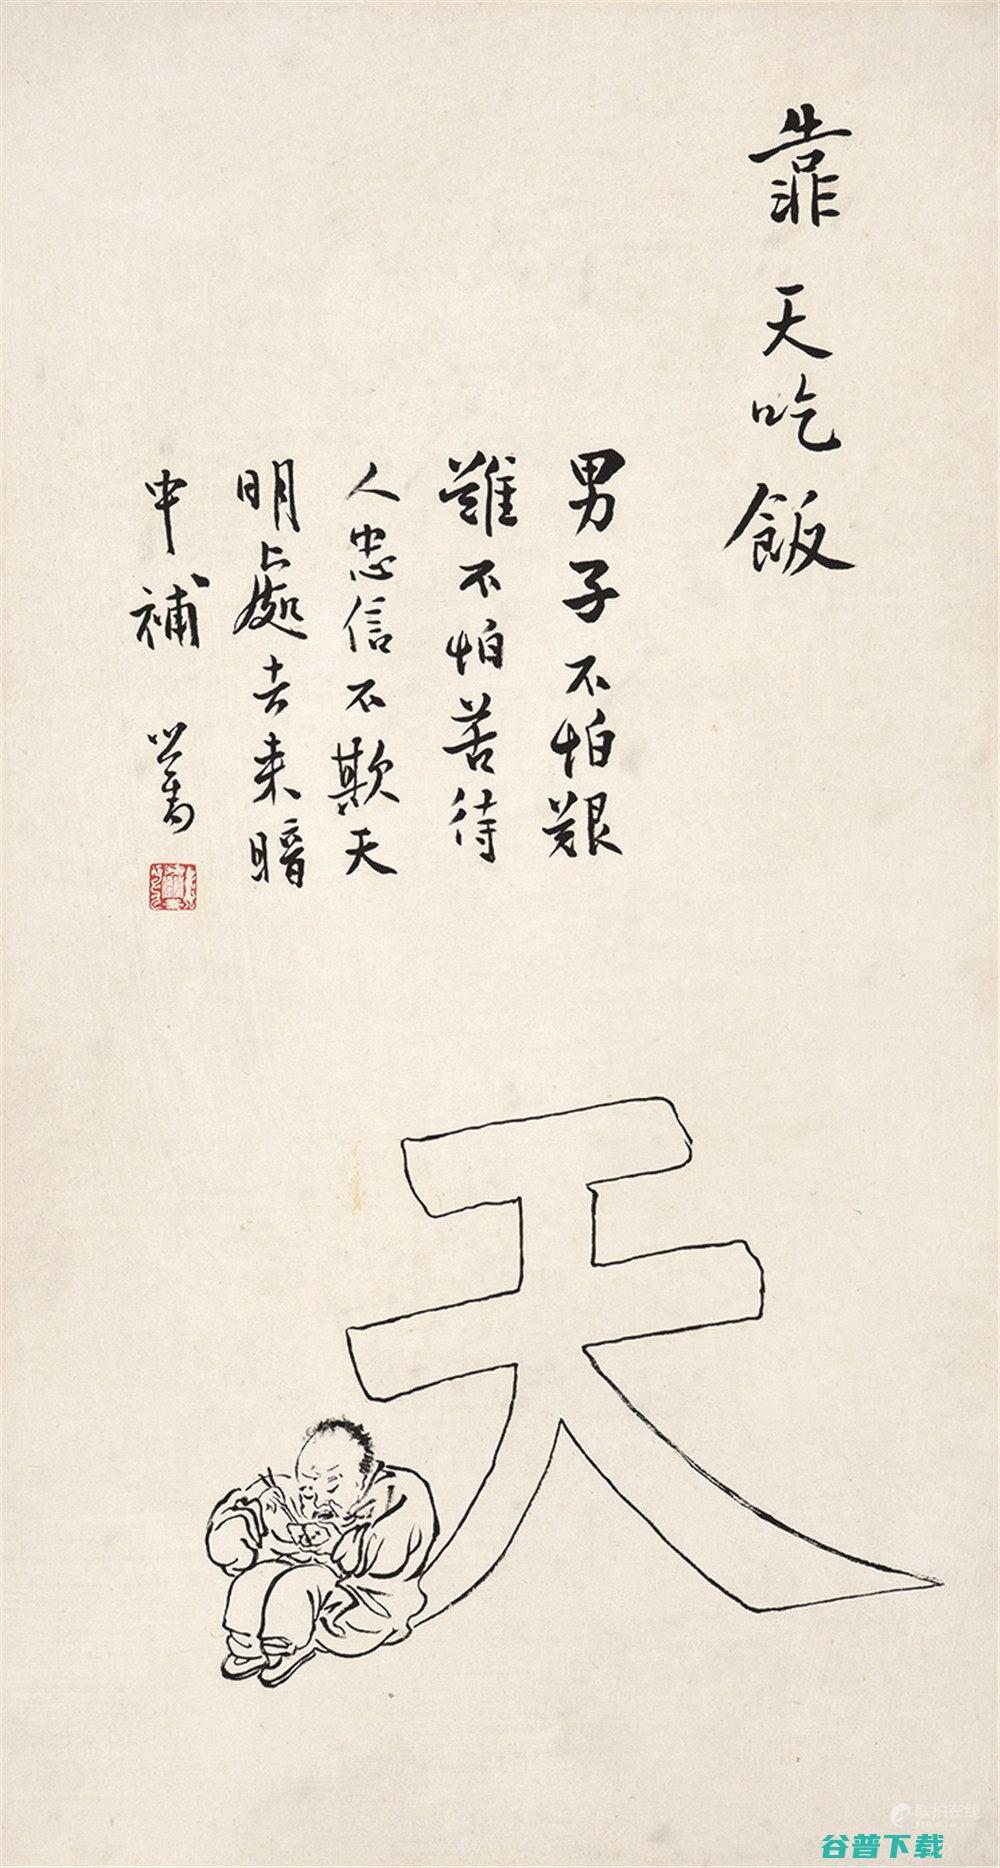 靠天吃飯
男子不怕艱
難不怕苦待
人忠信不欺天
明上處去來暗
中補 心畬
天
联拍在线
谷普下载